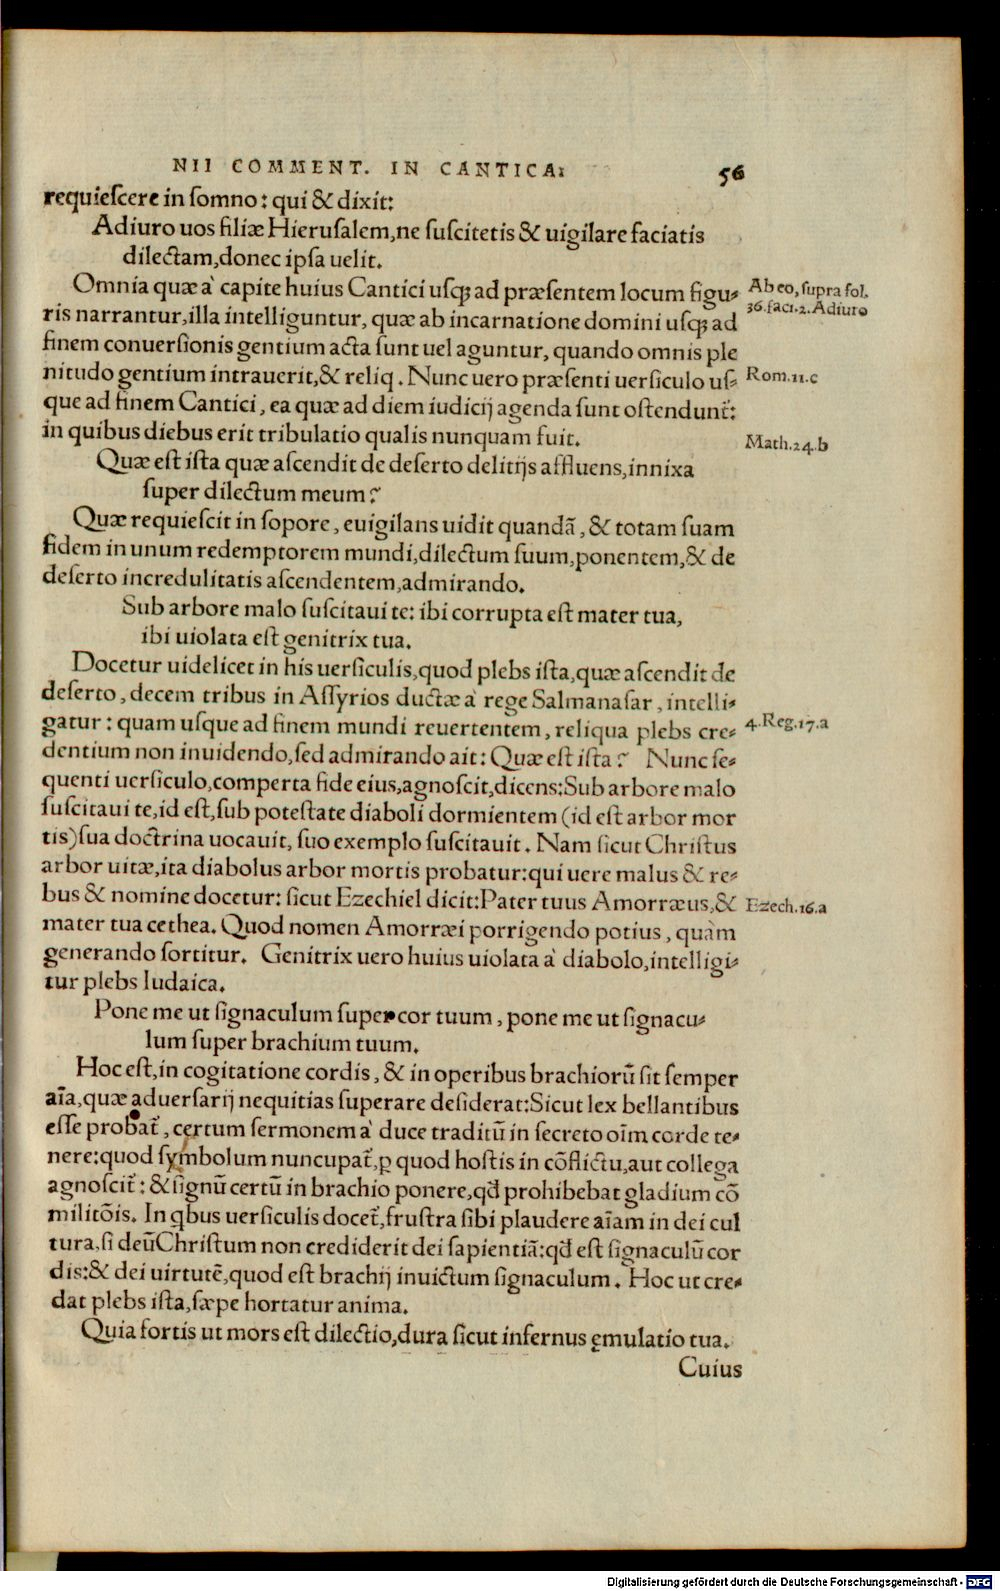 NII COMMENT. IN CANTICA: 56
requieſcere in ſomno: qui & dixit:
Adiuro uos filiæ Hieruſalem,ne ſuſcitetis & uigilare faciatis
dilectam,donec ipſa uelit.
Omnia quæ à capite huius Cantici uſqꝫ ad præſentem locum figu-
Ab eo, ſupra fol.
ris narrantur,illa intelliguntur, quæ ab incarnatione domini uſqꝫ ad
36.faci.2.Adiuro
finem conuerſionis gentium acta ſunt uel aguntur, quando omnis ple
nitudo gentium intrauerit,& reliq. Nunc uero præſenti uerſiculo uſ-
Rom.11.c
que ad finem Cantici, ea quæ ad diem iudicij agenda ſunt oſtendunt̃:
in quibus diebus erit tribulatio qualis nunquam fuit.
Math.24.b
Quæ eſt iſta quæ aſcendit de deſerto delitijs affluens,innixa
ſuper dilectum meum?
Quæ requieſcit in ſopore, euigilans uidit quandã, & totam ſuam
fidem in unum redemptorem mundi,dilectum ſuum,ponentem,& de
deſerto incredulitatis aſcendentem,admirando.
Sub arbore malo ſuſcitaui te: ibi corrupta eſt mater tua,
ibi uiolata eſt genitrix tua.
Docetur uidelicet in his uerſiculis,quod plebs iſta,quæ aſcendit de
deſerto, decem tribus in Aſſyrios ductæ à rege Salmanaſar, intelli-
gatur: quam uſque ad finem mundi reuertentem, reliqua plebs cre-
4.Reg.17.a
dentium non inuidendo,ſed admirando ait: Quæ eſt iſta? Nunc ſe-
quenti uerſiculo,comperta fide eius,agnoſcit,dicens:Sub arbore malo
ſuſcitaui te,id eſt,ſub poteſtate diaboli dormientem (id eſt arbor mor
tis)ſua doctrina uocauit, ſuo exemplo ſuſcitauit. Nam ſicut Chriſtus
arbor uitæ,ita diabolus arbor mortis probatur:qui uere malus & re-
bus & nomine docetur: ſicut Ezechiel dicit:Pater tuus Amorræus,&
Ezech.16.a
mater tua cethea. Quod nomen Amorræi porrigendo potius, quàm
generando ſortitur. Genitrix uero huius uiolata à diabolo,intelligi-
tur plebs Iudaica.
Pone me ut ſignaculum ſuper cor tuum, pone me ut ſignacu-
lum ſuper brachium tuum.
Hoc eſt,in cogitatione cordis, & in operibus brachiorũ ſit ſemper
aĩa,quæ aduerſarij nequitias ſuperare deſiderat:Sicut lex bellantibus
eſſe probat̃, certum ſermonem à duce traditũ in ſecreto oĩm corde te-
nere:quod ſymbolum nuncupat̃,ꝑ quod hoſtis in cõflictu,aut collega
agnoſcit̃: & ſignũ certũ in brachio ponere,qđ prohibebat gladium cõ
militõis. In qbus uerſiculis docet̃,fruſtra ſibi plaudere aĩam in dei cul
tura,ſi deũ Chriſtum non crediderit dei ſapientiã:qđ eſt ſignaculũ cor
dis:& dei uirtutẽ,quod eſt brachij inuictum ſignaculum. Hoc ut cre-
dat plebs iſta,ſæpe hortatur anima.
Quia fortis ut mors eſt dilectio,dura ſicut infernus ęmulatio tua.
Cuius
Digitalisierung gefördert durch die Deutsche Forschungsgemeinschaft - DFG